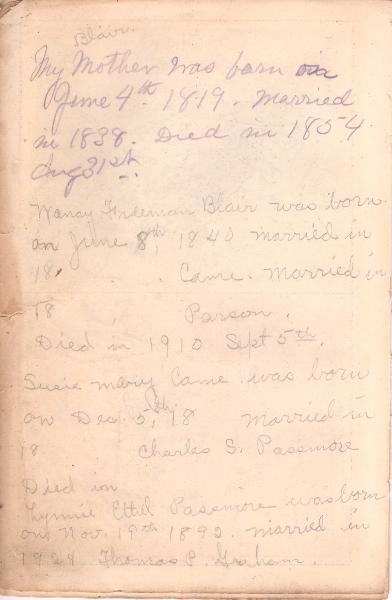 Blair.
My Mother was born in
June 4th 1819. Married
in 1838. Died in 1854
Aug 31st.
Nancy Frdeman Blair was born
on June 8th, 1840 married in
18 . Came. Married in
18 , Parson.
Died in 1910 Sept 5th.
Susie Mary Came was born
on Dec. 5th, 18 Married in
18 Charles S. Passmore
Died in
Lynnie Ethel Passmore was born
on Nov. 19th 1892. married in
1928 Thomas P. Graham.